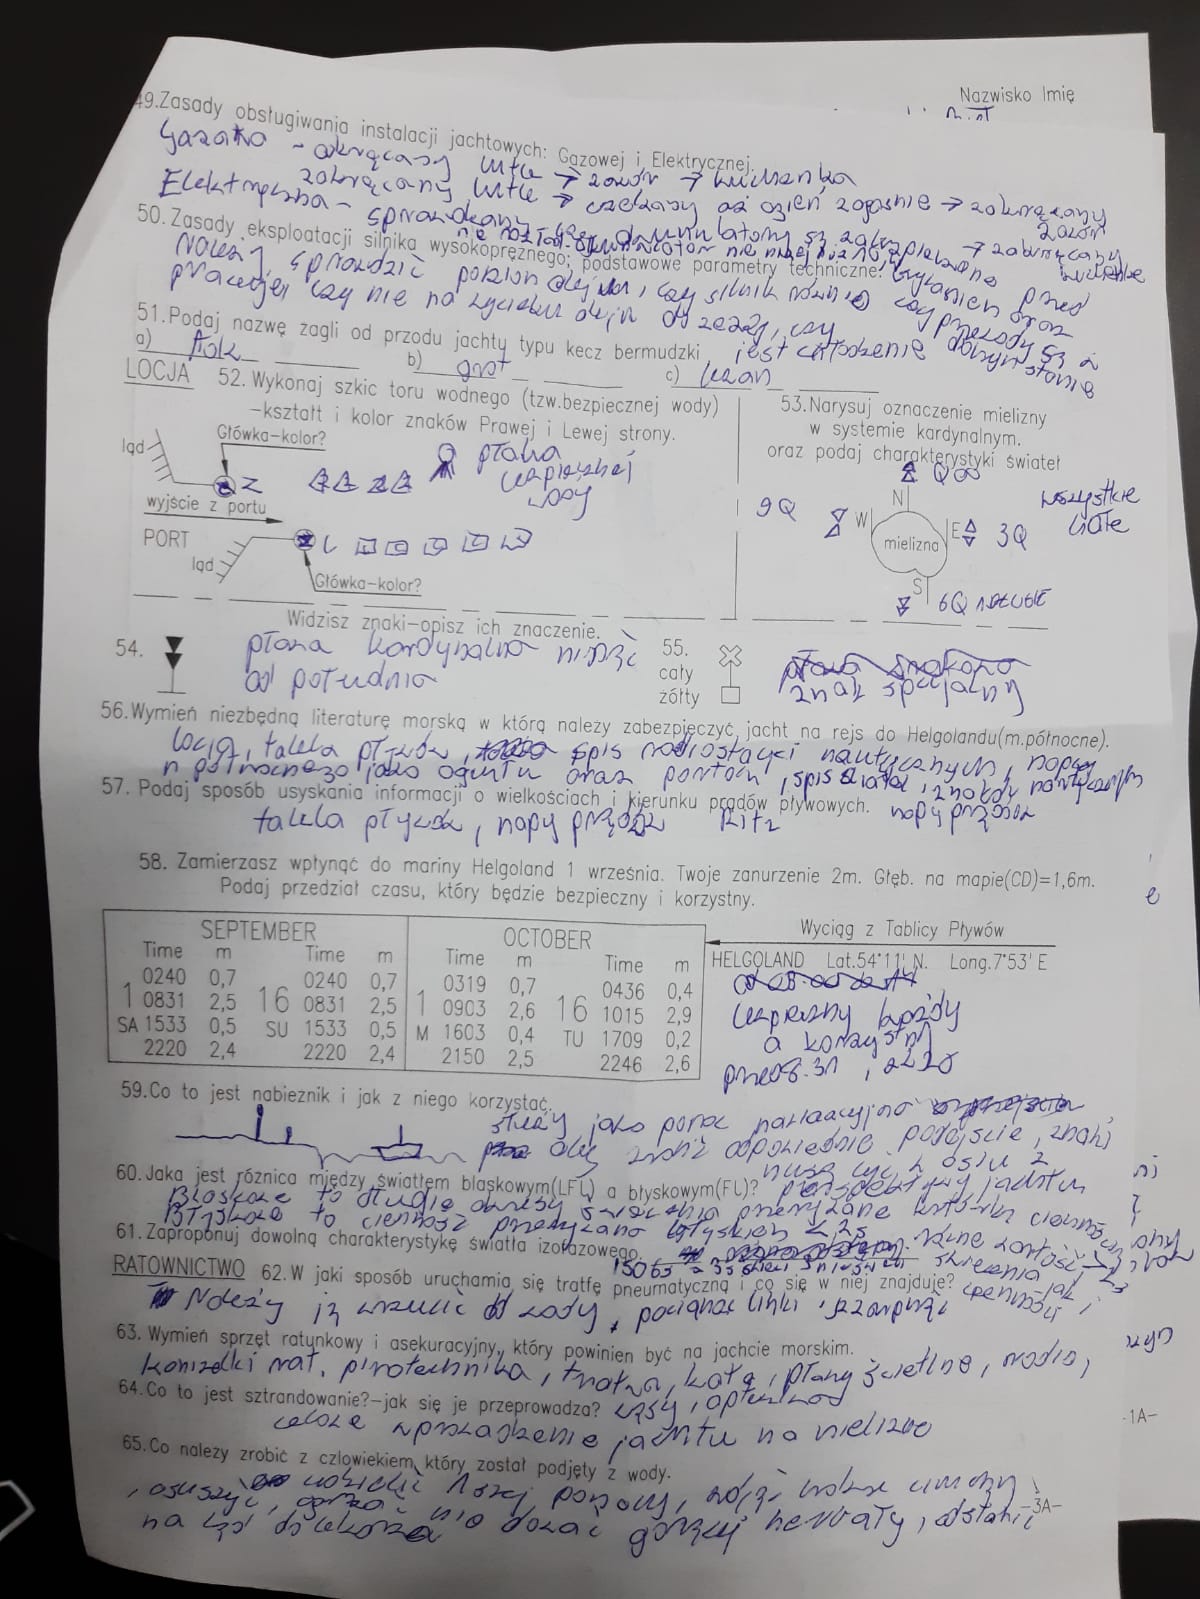 Nazwisko Imię
49.Zasady obsługiwania instalacji jachtowych: Gazowej i Elektrycznej.
Gazowa - odkręcamy butle → zawór → kuchenka
zakręcamy butle → czekamy aż ogień zgaśnie → zakręcamy zawór → zakręcamy kuchenke
Elektryczna - sprawdzamy czy akumulatory są zabezpieczone
50.Zasady eksploatacji silnika wysokoprężnego; podstawowe parametry techniczne.
Należy sprawdzić poziom oleju, czy silnik równie
pracuje, czy nie ma wycieku oleju czy przewody są w
51.Podaj nazwę żagli od przodu jachtu typu kecz bermudzki
jest chłodzenie dobrym stanie
a) fok b) grot c) bezan
LOCJA 52.Wykonaj szkic toru wodnego (tzw.bezpiecznej wody)
-kształt i kolor znaków Prawej i Lewej strony.
ląd Główka-kolor?
Z
pława bezpiecznej wody
wyjście z portu
PORT
ląd
Główka-kolor?
53.Narysuj oznaczenie mielizny
w systemie kardynalnym.
oraz podaj charakterystyki świateł
Q ∞
N
9Q W mielizna E 3Q
wszystkie białe
S 6Q + długie
Widzisz znaki-opisz ich znaczenie.
54. pława kardynalna minąć
od południa
55.
cały
żółty
znak specjalny
56.Wymień niezbędną literaturę morską w którą należy zabezpieczyć jacht na rejs do Helgolandu(m.północne).
locja, tabela pływów, spis radiostacji nautycznych, mapy
m północnego jako ogółu oraz portów, spis świateł, znaków nawigacyjnych
57. Podaj sposób usyskania informacji o wielkościach i kierunku prądów pływowych.
mapy prądów
tabela pływów, mapy prądów
58. Zamierzasz wpłynąć do mariny Helgoland 1 września. Twoje zanurzenie 2m. Głęb. na mapie(CD)=1,6m.
Podaj przedział czasu, który będzie bezpieczny i korzystny.
SEPTEMBER OCTOBER
Time m Time m Time m Time m
0240 0,7 0240 0,7 0319 0,7 0436 0,4
1 0831 2,5 16 0831 2,5 1 0903 2,6 16 1015 2,9
SA 1533 0,5 SU 1533 0,5 M 1603 0,4 TU 1709 0,2
2220 2,4 2220 2,4 2150 2,5 2246 2,6
Wyciąg z Tablicy Pływów
HELGOLAND Lat.54°11' N. Long.7°53' E
bezpieczny każdy
a korzystny
przed 8.31, 2220
59.Co to jest nabieznik i jak z niego korzystać.
służy jako pomoc nawigacyjna
aby zrobić odpowiednie podejscie, znaki
muszą być w osiu z
perspektywy jachtu
60.Jaka jest różnica między światłem blaskowym(LFL) a błyskowym(FL)?
Blaskowe to długie okresy świecenia przerywane krótką ciemnością
Błyskowe to ciemność przerywana błyskiem < 2s
61.Zaproponuj dowolną charakterystykę światła izofazowego.
ISO 6s = 3s świeci 3 nie świeci
RATOWNICTWO 62.W jaki sposób uruchamia się tratfę pneumatyczną i co się w niej znajduje?
Należy ją wrzucić do wody, pociągnąć linki, szarpnąć
63. Wymień sprzęt ratunkowy i asekuracyjny, który powinien być na jachcie morskim.
kamizelki rat. pirotechnika, tratwa, koła, pławy świetlne, radio,
64.Co to jest sztrandowanie?-jak się je przeprowadza?
pasy, apteczka
celowe wprowadzenie jachtu na mielizne
65.Co nalezy zrobić z człowiekiem, który został podjęty z wody.
udzielić 1szej pomocy, zdjąć mokre ubrania
, osuszyć, ogrzać, dać gorzkiej herbaty, odstawić
na ląd do lekarza
-1A-
-3A-